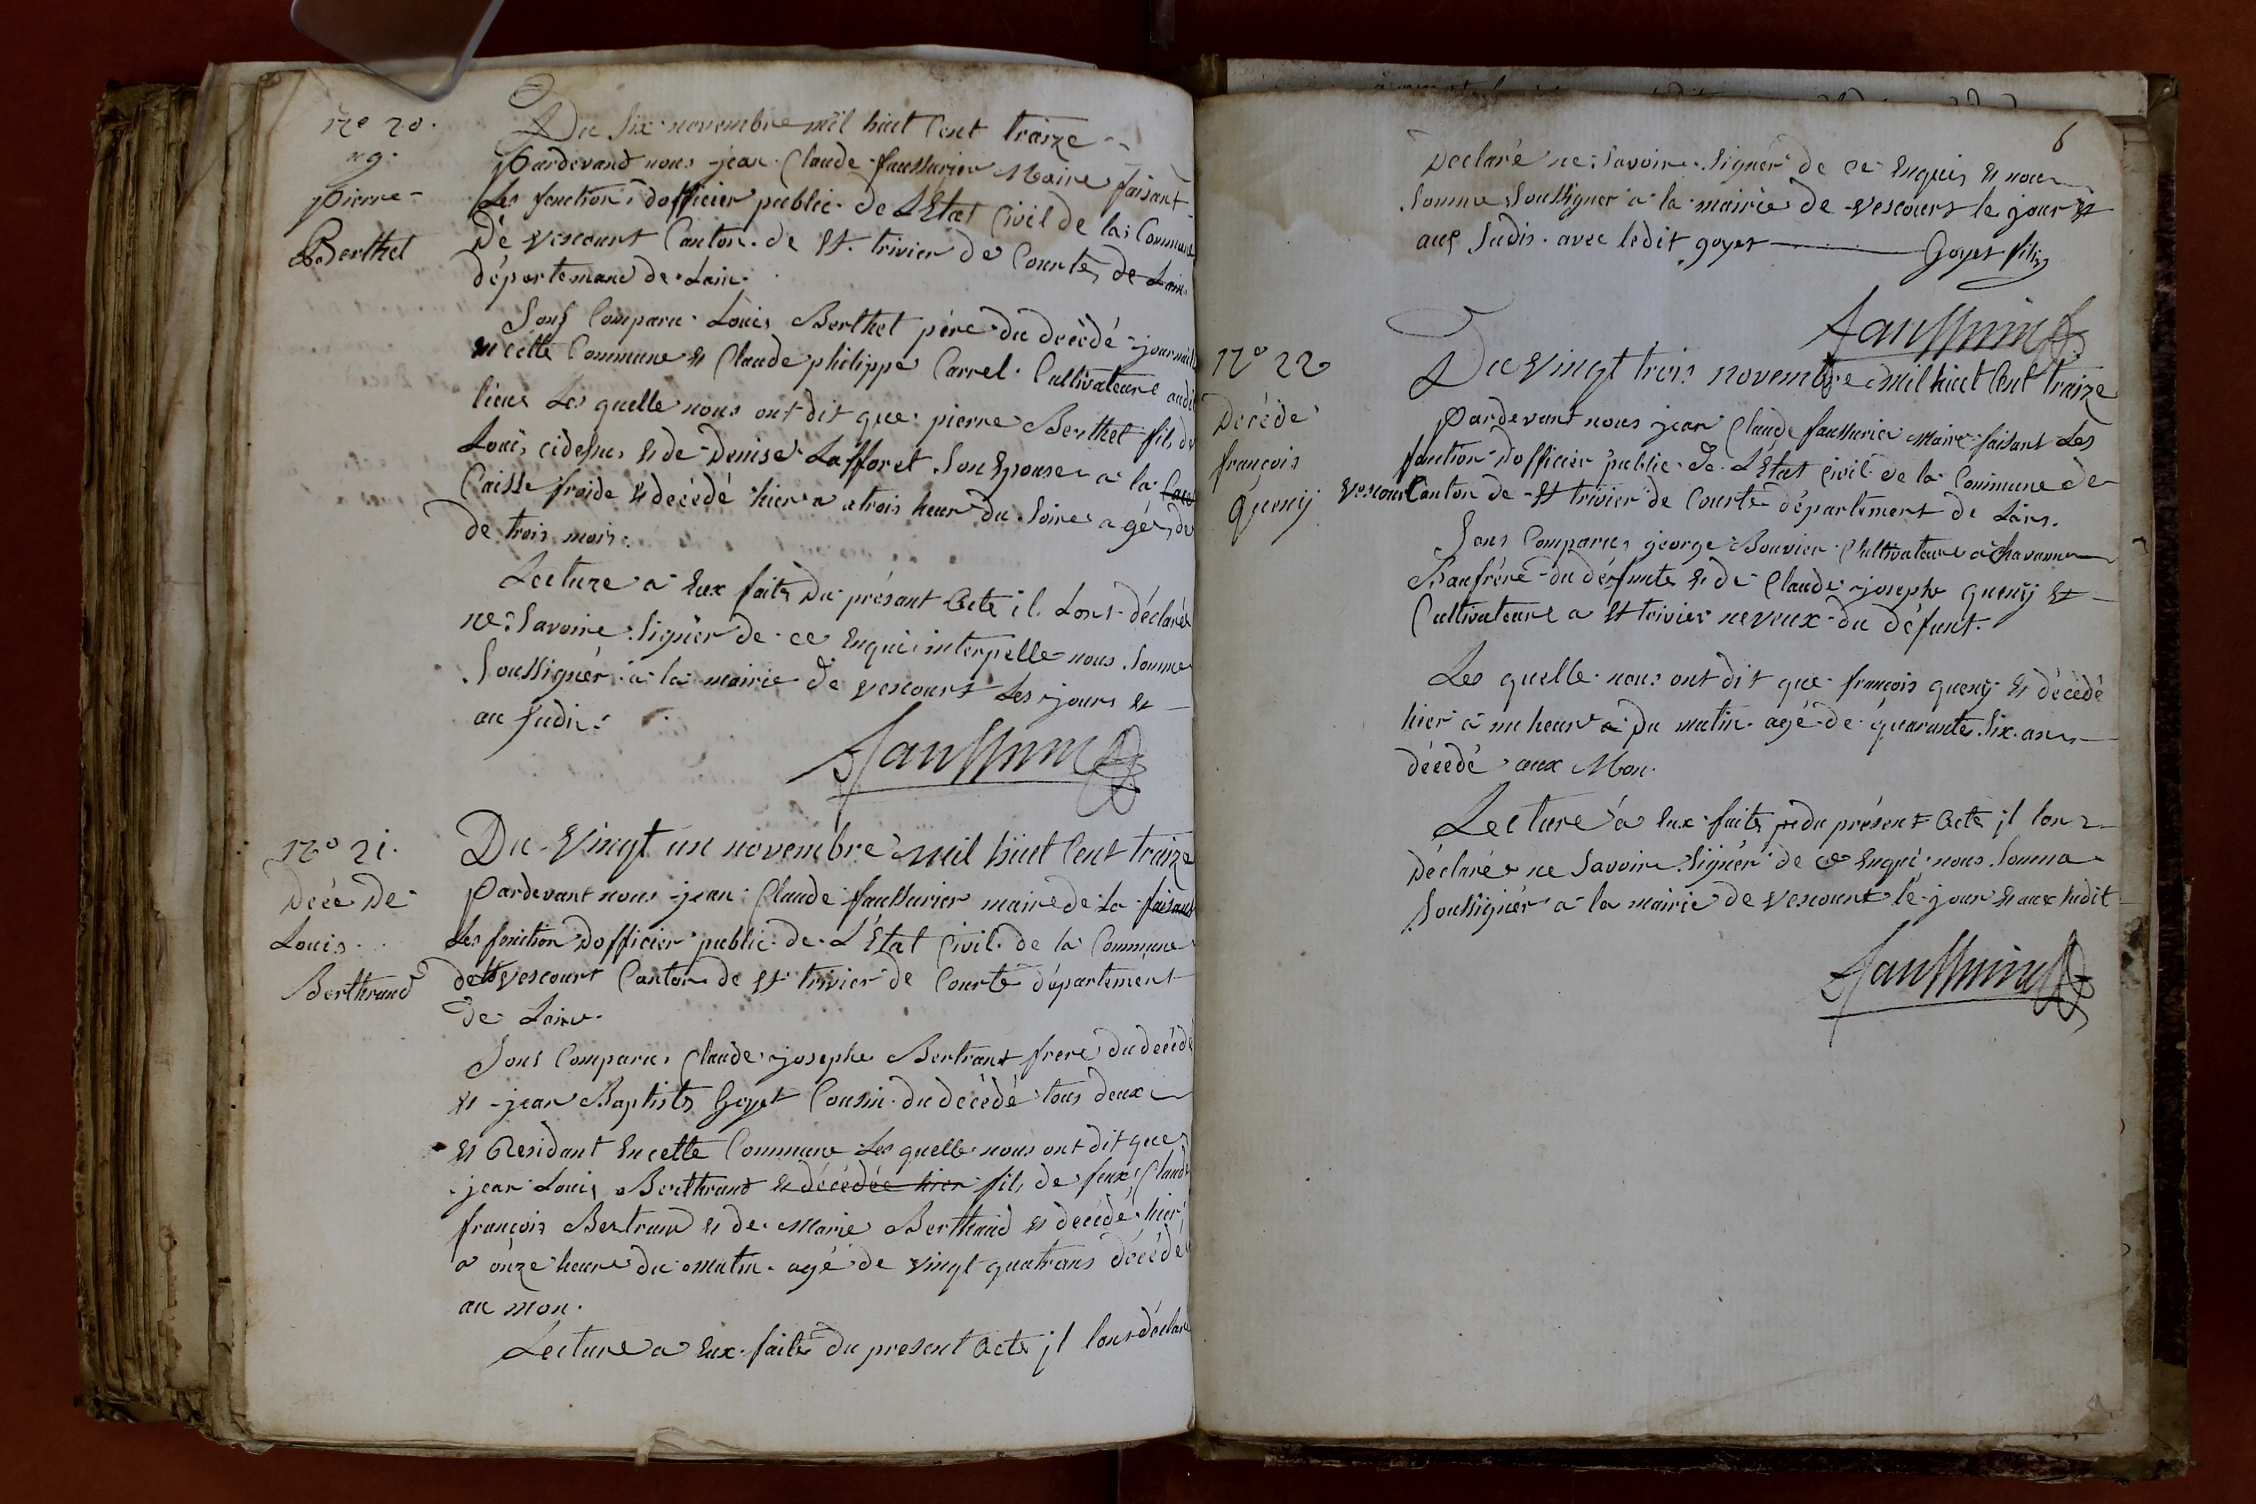 N° 20.
ng.
pierre
Berthet
Du Six novembre mil huit Cent traize
Pardevand nous jean Claude faussurier Maire faisant
Les fonction dofficier public de L'Etat Civil de la Commune
De vescourt Canton de St. trivier de Courtes de Lain
départemand de Lain.
Sons Comparu Louis Berthet père du decédé journalié
en cette Commune et Claude philippe Carrel Cultivateure audit
lieux Les quelle nous ont dit que pierre Berthet fils de
Louis cidesus et de Denise Lafforet Son Epouse a la
Caisse froide Et decédé hier a atrois heur du Soire agé de
de trois mois.
Lecture a Eux faite du présant Acte il Lont déclarés
ne Savoire Signér de ce Enqui interpelle nous Somme
Soussignér a la mairie de vescourt Les jours et
au Sudis
Faussurier
N° 21.
Décé De
Louis
Berthrand
Du Vingt un novembre mil huit Cent traize
Pardevant nous jean Claude faussurier maire de La faisant
Les fonction dofficier public de L'Etat Civil de la Commune
de vescourt Canton de St trivier de Courte département
de Lain.
Sons Comparus Claude josephe Bertrant frere du décédé
et jean Baptiste Goyet Cousin du décédé tous deux
et Residant En cette Commune Les quelle nous ont dit que
jean Louis Berthrand et décédée hier fils de feux Claude
françois Bertrand et de Marie Berthaud et decédé hier
a onze heure du matin agé de vingt quatrans décédé
au mon.
Lecture a Eux faite du present Acte il lont déclaré
6
Declaré ne Savoire Signér de ce Enquis et nous
Somme Soussigner a la mairie de vescourt le jour et
aus Sudis avec ledit goyet Goyet fils
Faussurier
N° 22
Décédé
françois
Queny
Du vingt trois novembre mil huit Cent traize
Pardevant nous jean Claude faussurier Maire faisant Les
fonction dofficier public de L'Etat Civil de la Commune de
vescour Canton de St trivier de Courte département de Lain.
Sons Comparus george Bouvier Cultivateure a Chavanne
Beaufrére du défunte et de Claude josephe queny et
Cultivateure a St trivier neveux du défunt.
Les quelle nous ont dit que françois queny et décédé
hier a un heur a du matin agé de quarante Six ans
décédé aux Mon.
Lecture a Eux faite du présent Acte il lon
Déclaré ne Savoire Signér de ce Enqui nous Somma
Soussignér a la mairie de vescourt le jour et aux Sudit
Faussurier